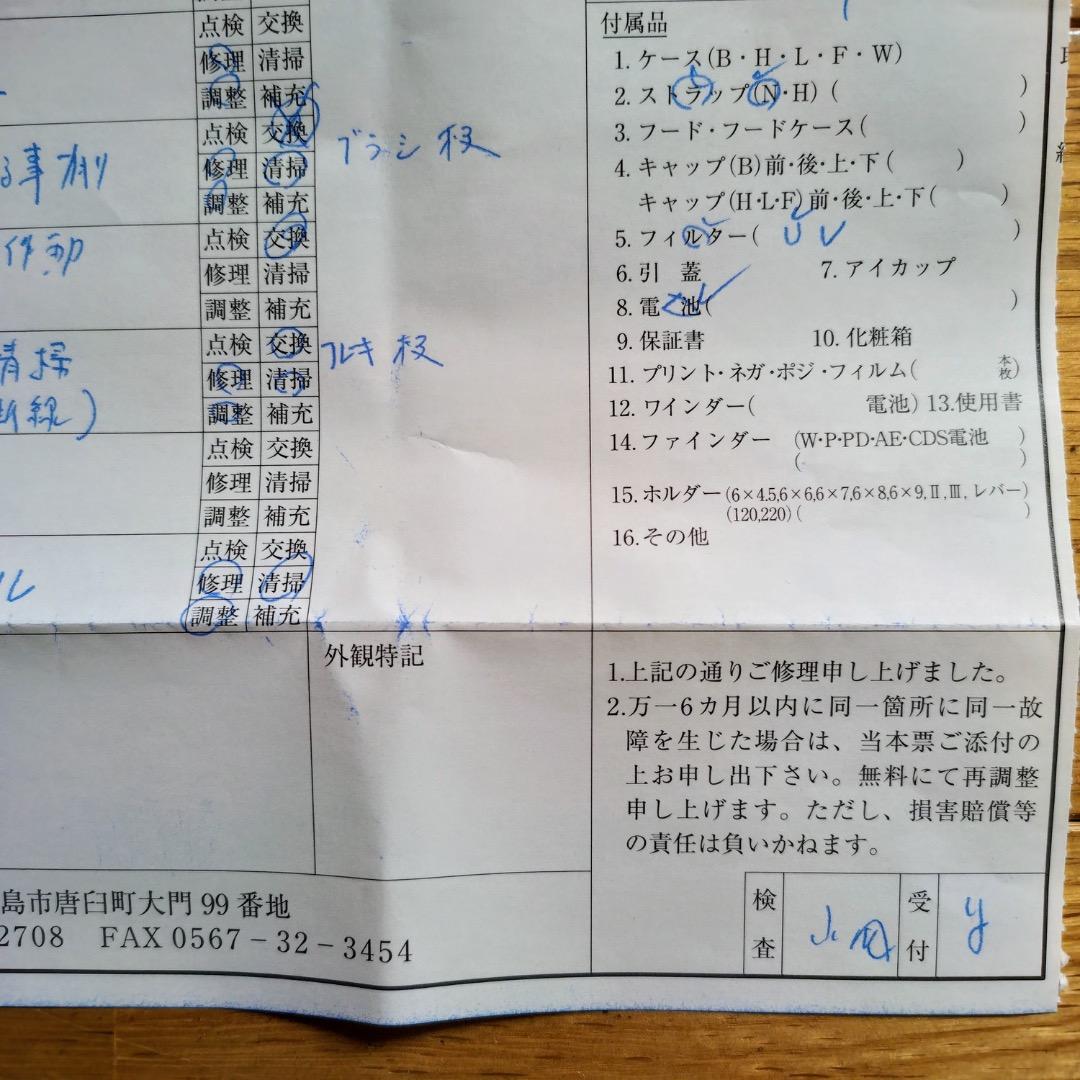 点検 交換
修理 清掃
調整 補充
点検 交換
修理 清掃
調整 補充
ブラシ板
る事有り
点検 交換
修理 清掃
調整 補充
作動
点検 交換
修理 清掃
調整 補充
フレキ板
清掃
断線)
点検 交換
修理 清掃
調整 補充
点検 交換
修理 清掃
調整 補充
外観特記
島市唐臼町大門99番地
2708 FAX 0567-32-3454
付属品
1.ケース(B・H・L・F・W)
2.ストラップ(N・H) ( )
3.フード・フードケース( )
4.キャップ(B)前・後・上・下( )
キャップ(H・L・F)前・後・上・下( )
5.フィルター( UV )
6.引 蓋 7.アイカップ
8.電 池( )
9.保証書 10.化粧箱
11.プリント・ネガ・ポジ・フィルム( 本枚)
12.ワインダー( 電池) 13.使用書
14.ファインダー (W・P・PD・AE・CDS電池 )
( )
15.ホルダー(6×4.5,6×6,6×7,6×8,6×9,Ⅱ,Ⅲ,レバー)
(120,220) ( )
16.その他
1.上記の通りご修理申し上げました。
2.万一6カ月以内に同一箇所に同一故
障を生じた場合は、当本票ご添付の
上お申し出下さい。無料にて再調整
申し上げます。ただし、損害賠償等
の責任は負いかねます。
検査 受付 y